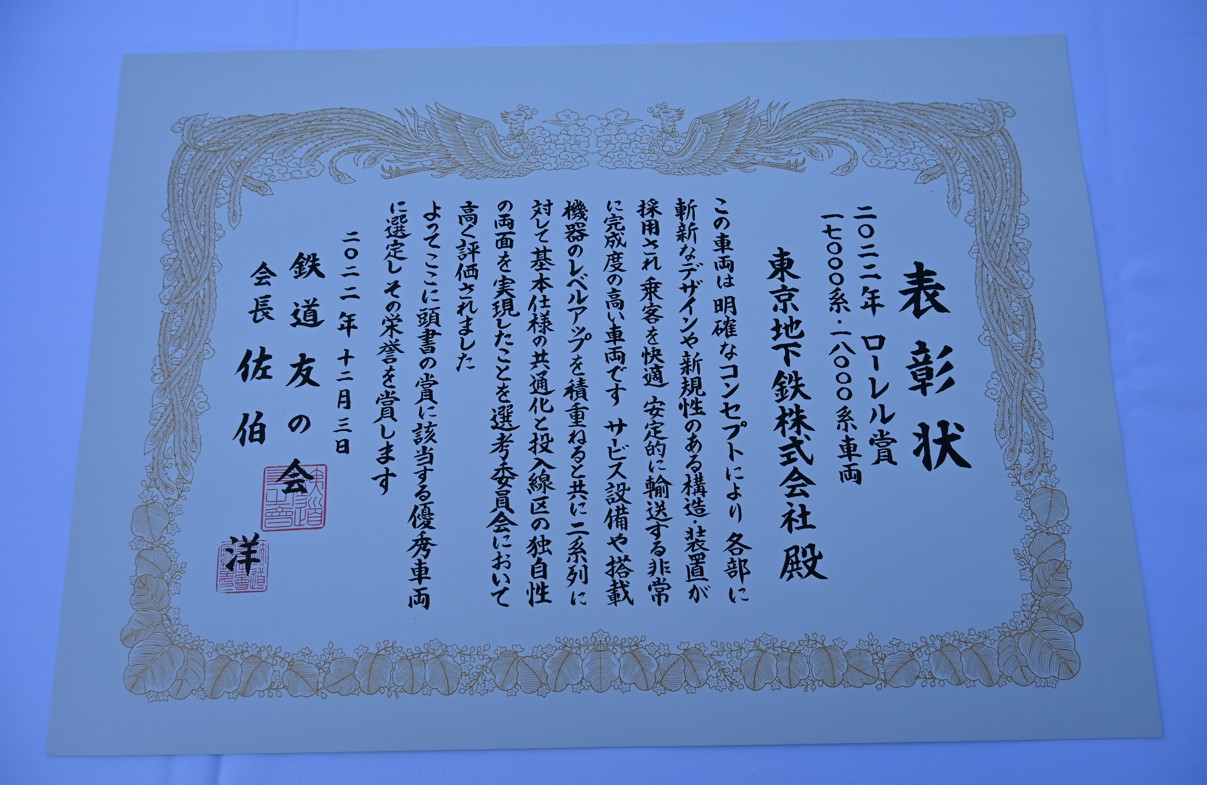 表彰状
二〇二二年 ローレル賞
一七〇〇〇系・一八〇〇〇系車両
東京地下鉄株式会社 殿
この車両は 明確なコンセプトにより 各部に
斬新なデザインや新規性のある構造・装置が
採用され 乗客を快適 安定的に輸送する非常
に完成度の高い車両です サービス設備や搭載
機器のレベルアップを積重ねると共に二系列に
対して基本仕様の共通化と投入線区の独自性
の両面を実現したことを選考委員会において
高く評価されました
よってここに頭書の賞に該当する優秀車両
に選定しその栄誉を賞します
二〇二二年十二月三日
鉄道友の会
会長 佐伯 洋